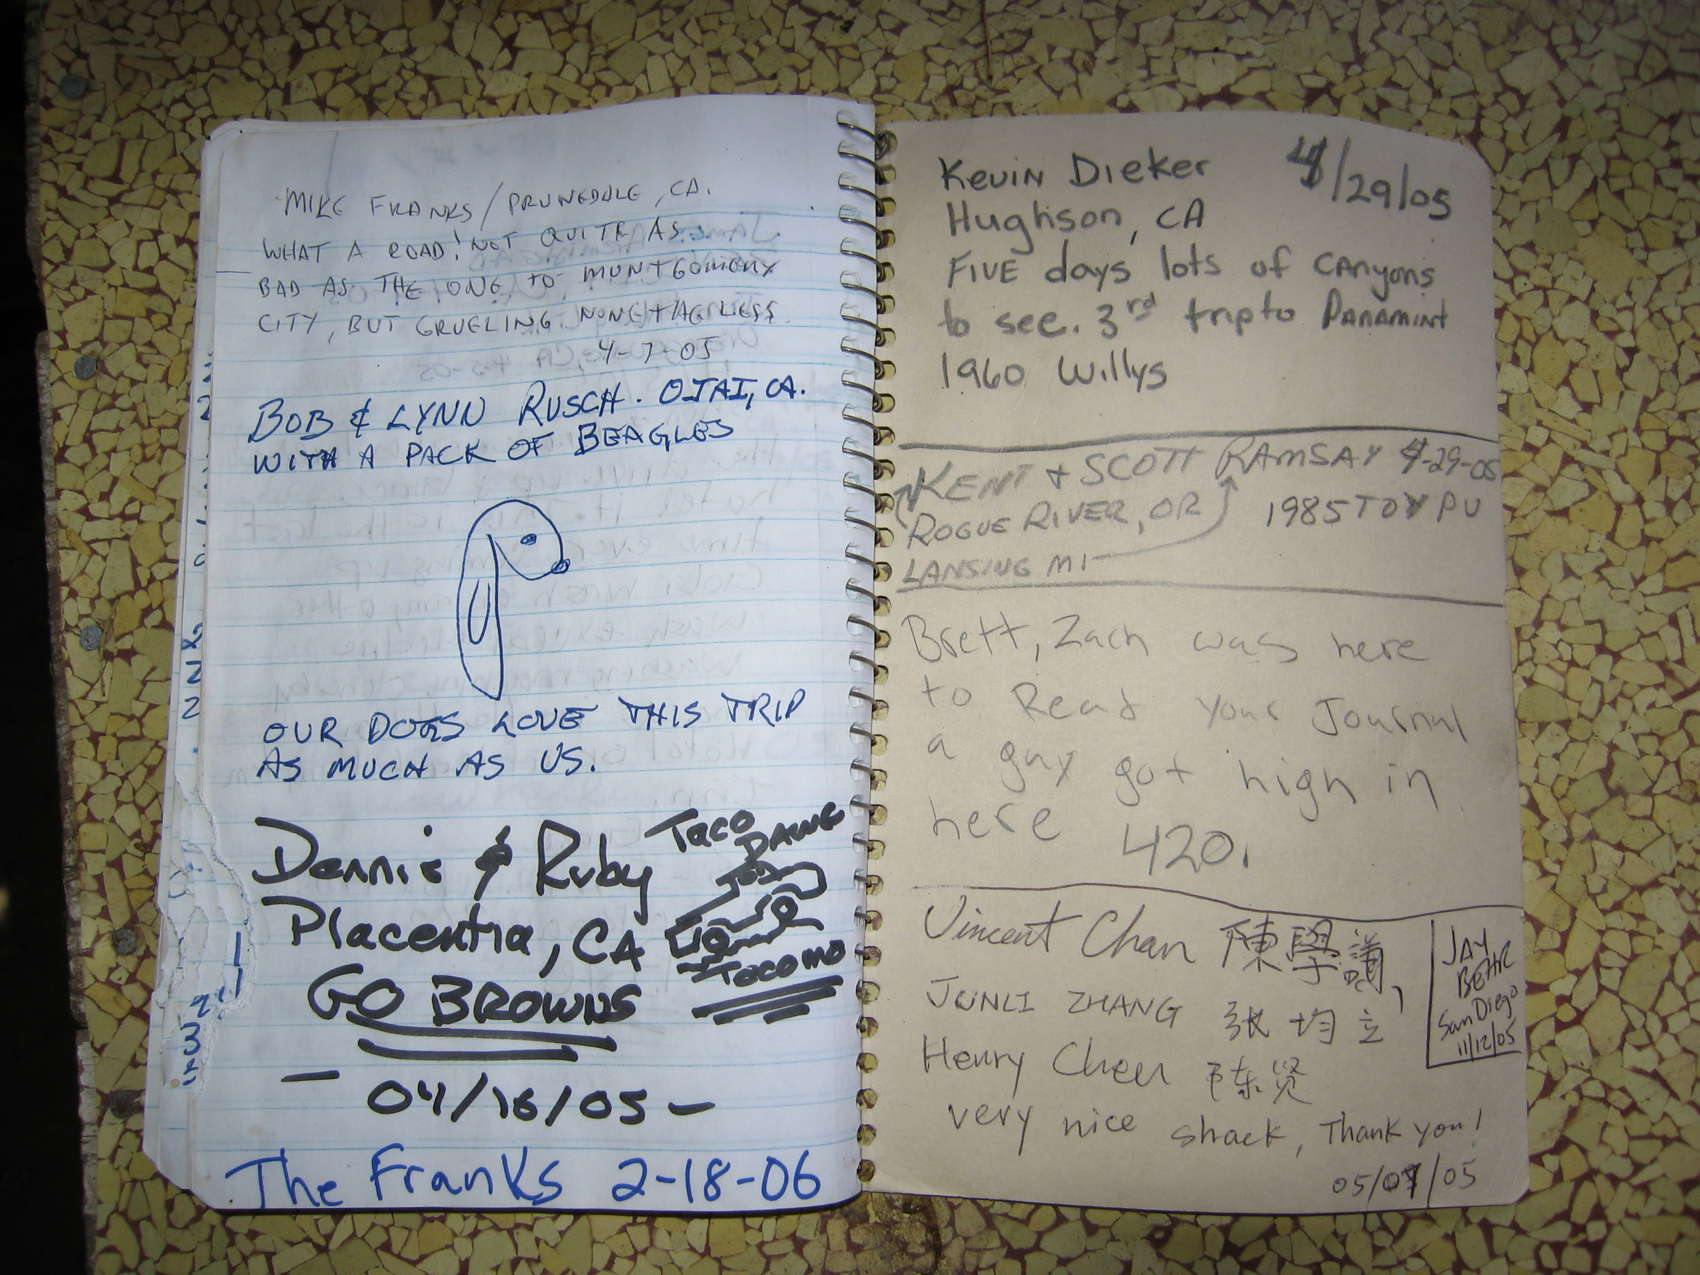 MIKE FRANKS / PRUNEDALE, CA.
WHAT A ROAD! NOT QUITE AS
BAD AS THE ONE TO MONTGOMERY
CITY, BUT GRUELING NONETHELESS.
4-7-05
BOB & LYNN RUSCH. OJAI, CA.
WITH A PACK OF BEAGLES
OUR DOGS LOVE THIS TRIP
AS MUCH AS US.
Dennis & Ruby
Placentia, CA
GO BROWNS
- 04/16/05 -
TACO
DAWG
TACOMO
The Franks 2-18-06
Kevin Dieker 4/29/05
Hughson, CA
FIVE days lots of CANyons
to see. 3rd trip to PANAMINT
1960 Willys
KENT + SCOTT RAMSAY 4-29-05
ROGUE RIVER, OR 1985 TOY PU
LANSING MI
Brett, Zach was here
to Read your Journal
a guy got high in
here 420.
Vincent Chan 陳學
JUNLI ZHANG 张均立
Henry Chen 陈贤
very nice shack, Thank you!
05/07/05
JAY
BEHR
San Diego
11/12/05